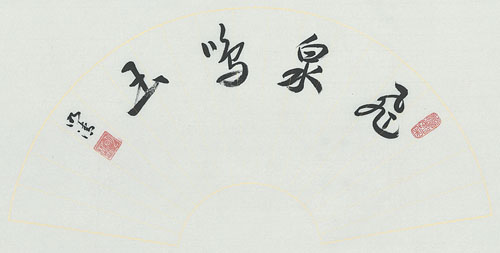 飞泉鸣玉